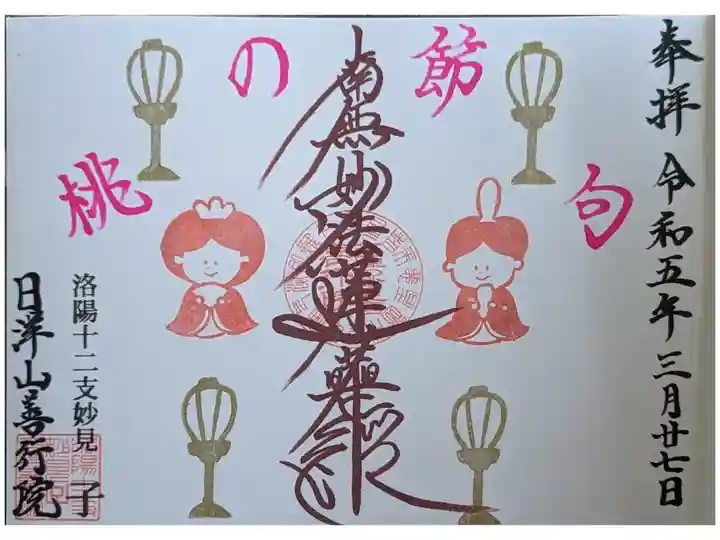 奉拝 令和五年三月廿七日
桃の節句
南無妙法蓮華経
洛陽十二支妙見 子
日洋山善行院